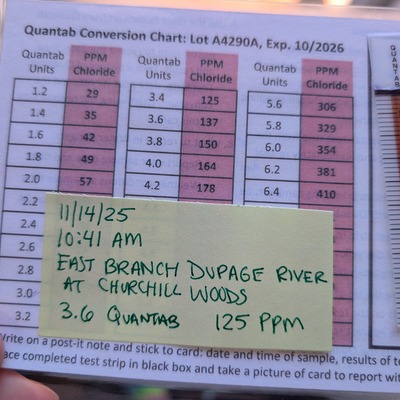 Quantab Conversion Chart: Lot A4290A, Exp. 10/2026
Quantab Units PPM Chloride Quantab Units PPM Chloride Quantab Units PPM Chloride
1.2 29 3.4 125 5.6 306
1.4 35 3.6 137 5.8 329
1.6 42 3.8 150 6.0 354
1.8 49 4.0 164 6.2 381
2.0 57 4.2 178 6.4 410
2.2
2.4
2.6
2.8
3.0
3.2
11/14/25
10:41 AM
EAST BRANCH DUPAGE RIVER
AT CHURCHILL WOODS
3.6 QUANTAB 125 PPM
Write on a post-it note and stick to card: date and time of sample, results of
completed test strip in black box and take a picture of card to report
QUANTAB